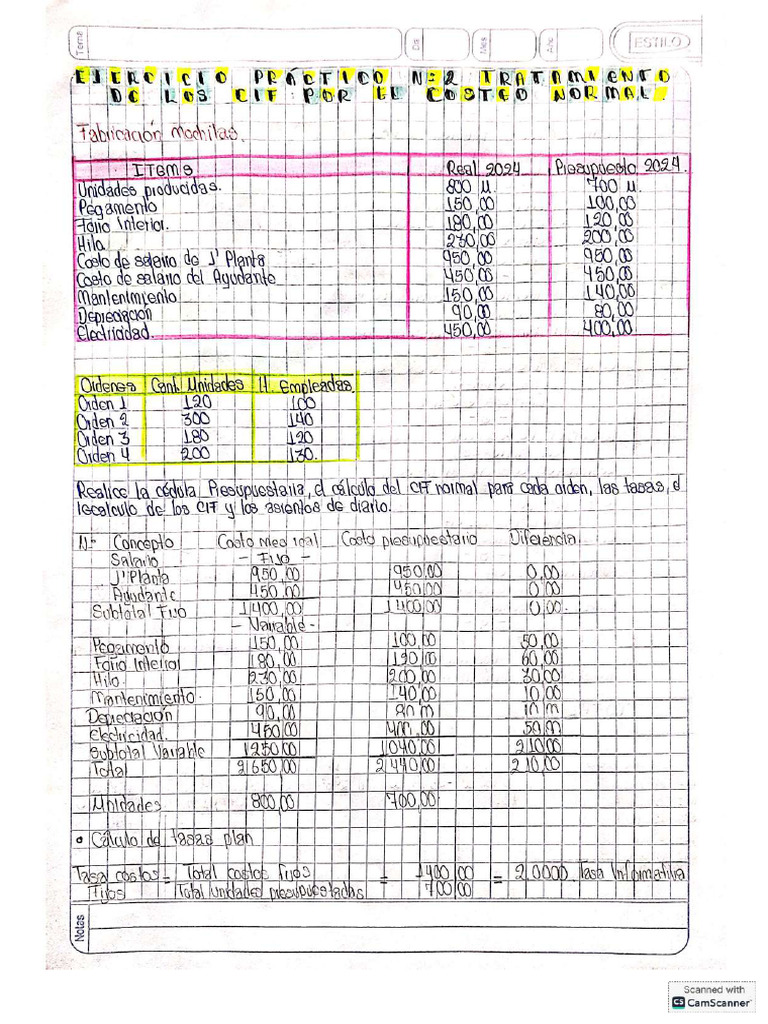 Tema Día Mes Año ESTILO
EJERCICIO PRÁCTICO N=2 TRATAMIENTO
DE LOS CIF POR EL COSTEO NORMAL.
Fabricación Mochilas.
Items Real 2024 Presupuesto 2024.
Unidades producidas. 800 u 700 u.
Pegamento 150,00 100,00
Forro Interior. 180,00 120,00
Hilo 230,00 200,00
Costo de salario de J' Planta 950,00 950,00
Costo de salario del Ayudante 450,00 450,00
Mantenimiento 150,00 140,00
Depreciación 90,00 80,00
Electricidad. 450,00 400,00
Ordenes Cant. Unidades H. Empleadas.
Orden 1 120 100
Orden 2 300 140
Orden 3 180 120
Orden 4 200 130.
Realice la cédula Presupuestaria, el cálculo del CIF normal para cada orden, las tasas, el
recalculo de los CIF y los asientos de diario.
1)= Concepto Costo Med ical Costo presupuestario Diferencia
Salario - Fijo -
J' Planta 950,00 950,00 0,00
Ayudante 450,00 450,00 0,00
Subtotal Fijo 1400,00 1400,00 0,00.
- Variable -
Pegamento 150,00 100,00 50,00
Forro Interior 180,00 120,00 60,00
Hilo 230,00 200,00 30,00
Mantenimiento. 150,00 140,00 10,00
Depreciación 90,00 80,00 10,00
Electricidad. 450,00 400,00 50,00
Subtotal Variable 1250,00 1040,00 210,00
Total 2650,00 2440,00 210,00
Unidades 800,00 700,00
• Cálculo de tasas plan
Tasa costos = Total costos fijos = 1400,00 = 2,0000 Tasa Informativa
Fijos Total unidades presupuestadas 700,00
Notas
Scanned with
CS CamScanner